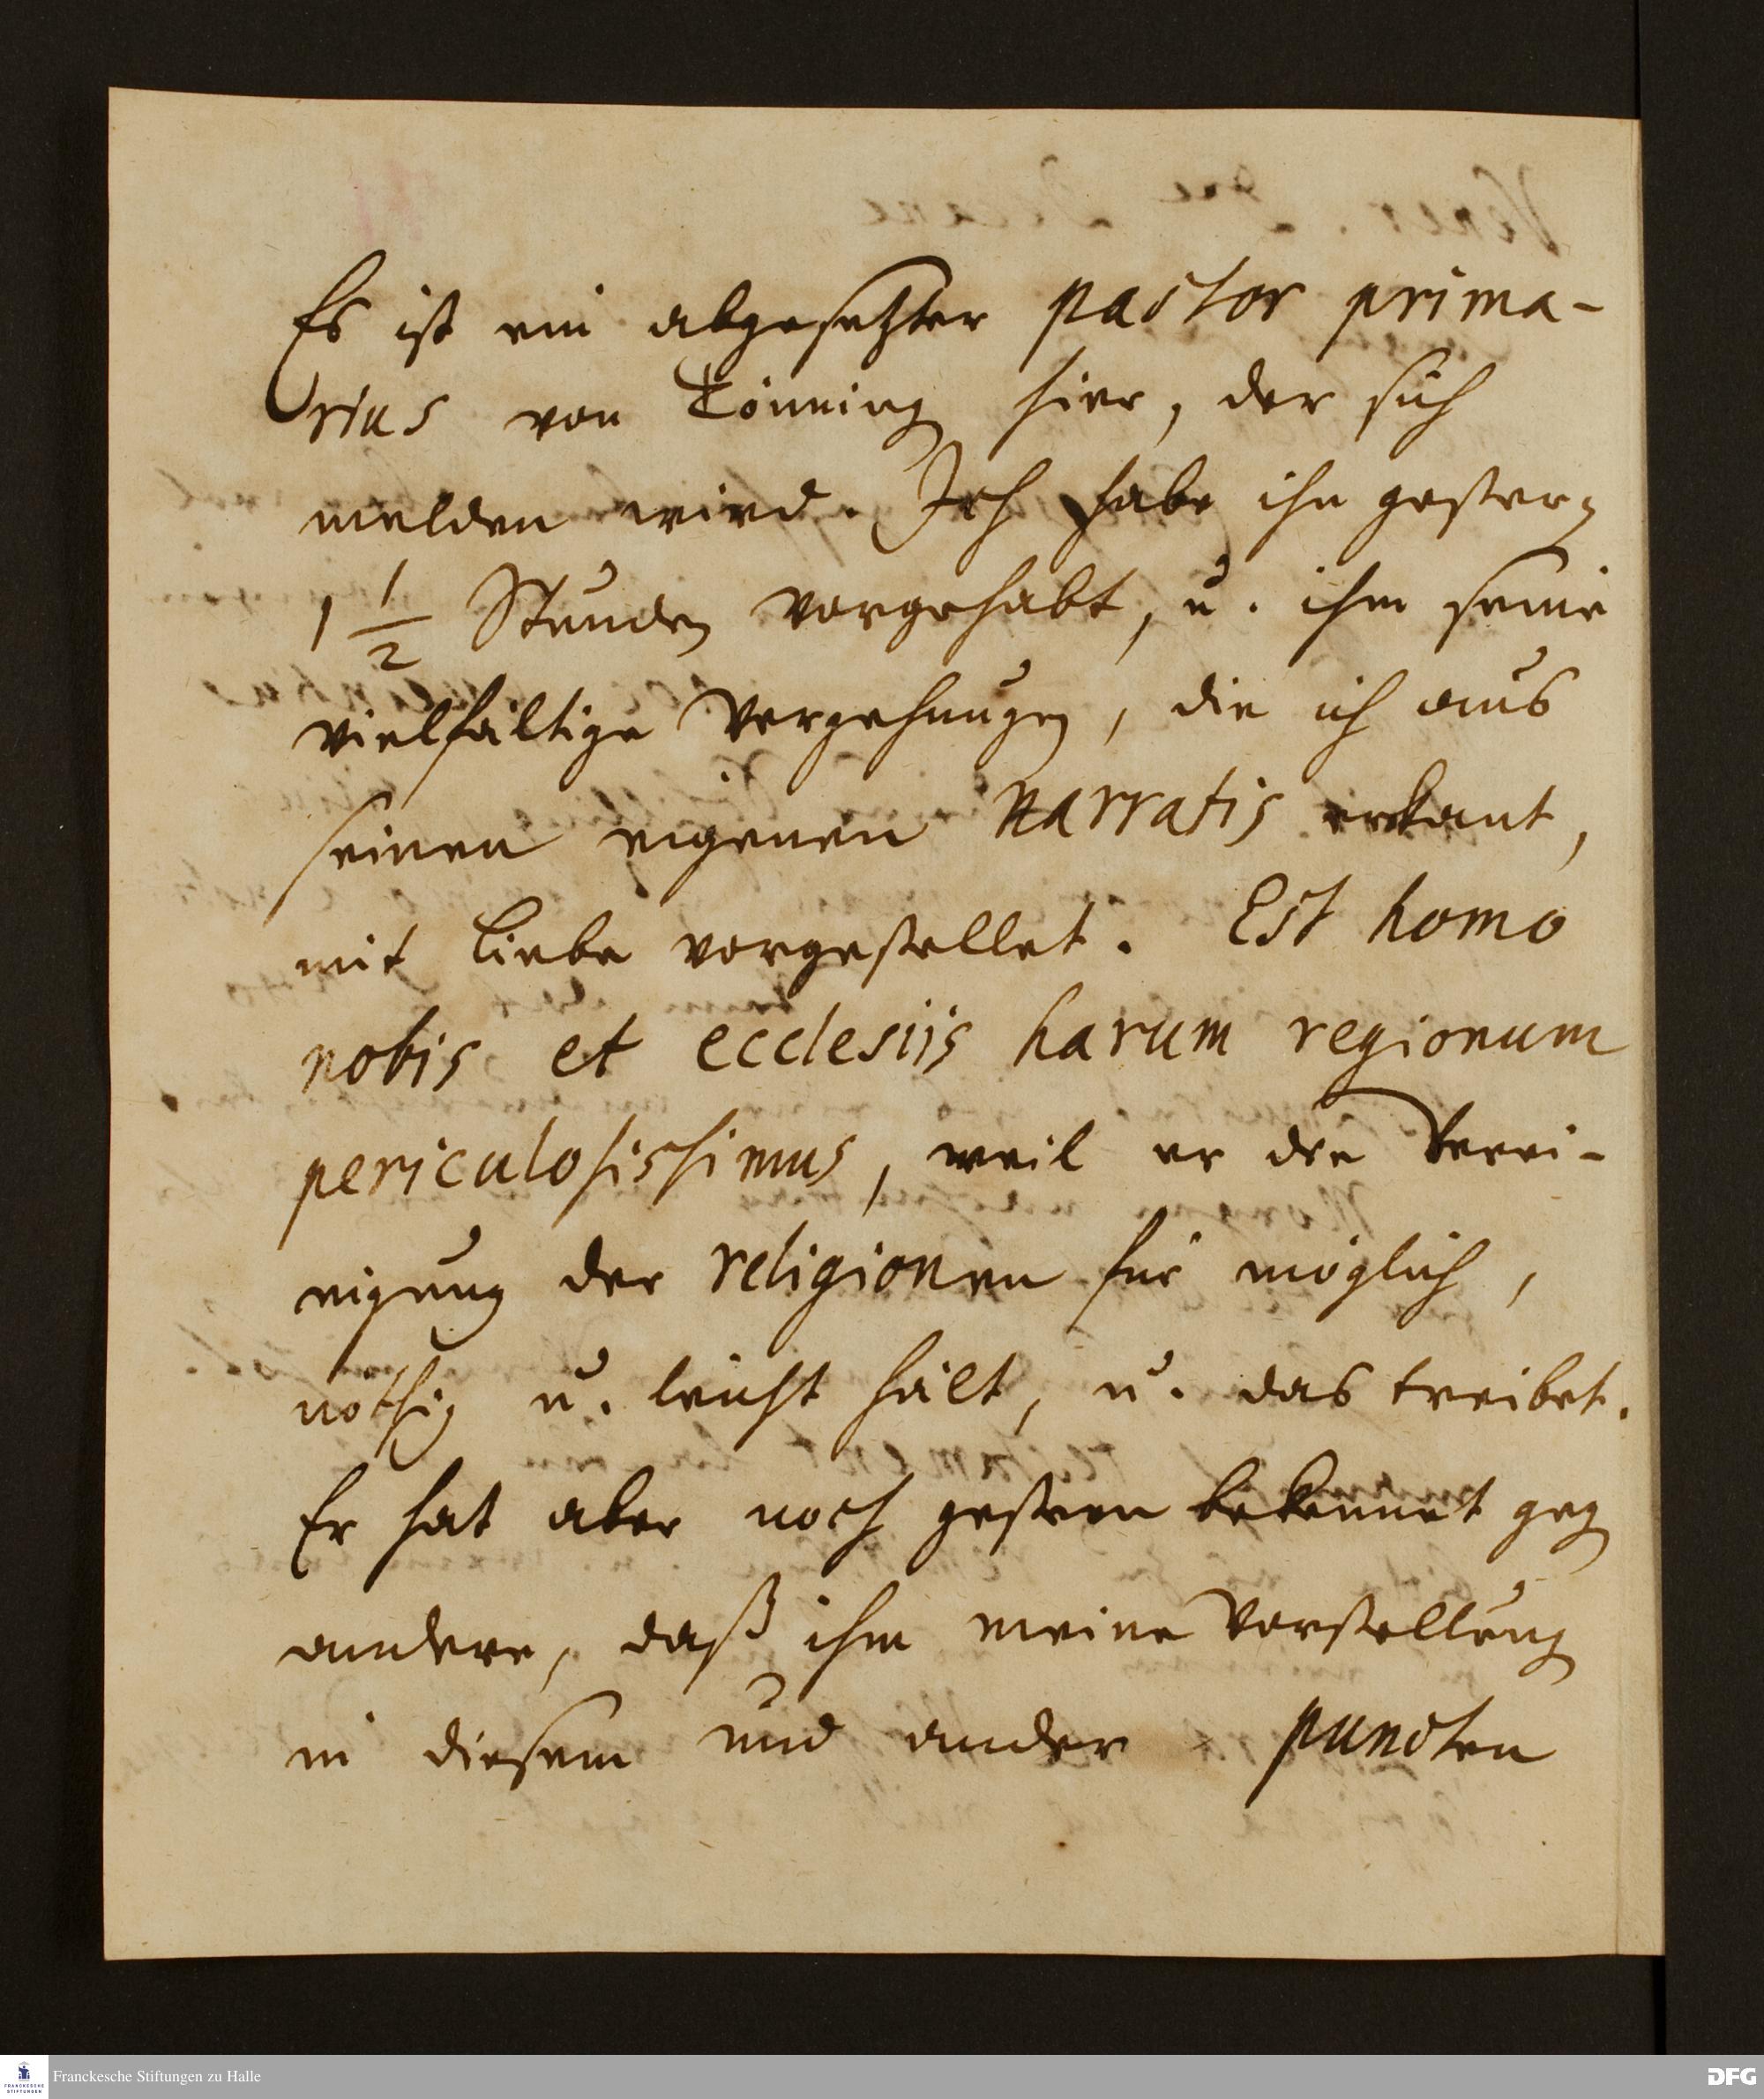 Es ist ein abgesetzter pastor prima-
rius von Tönning hier, der sich
melden wird. Ich habe ihn gestern
1 1/2 Stunden vorgehabt, u. ihm seine
vielfältige Vergehungen, die ich aus
seinen eigenen narratis erkant,
mit Liebe vorgestellet. Est homo
nobis et ecclesiis harum regionum
periculosissimus, weil er die Verei-
nigung der religionen für möglich,
nöthig u. leicht hält, u. das treibet.
Er hat aber noch gestern bekennet gegen
andere, daß ihm meine Vorstellung
in diesem und ander puncten
Franckesche Stiftungen zu Halle
DFG